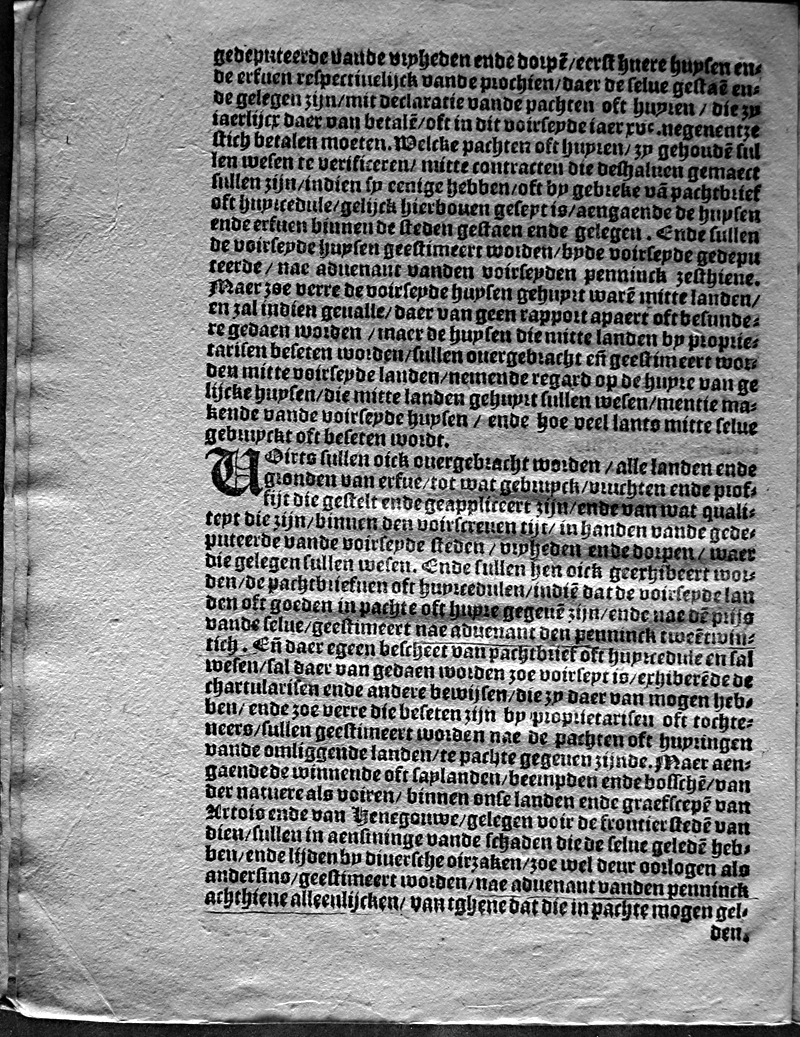 gedeputeerde vande vryheden ende dorpē/eerst huere huysen en⸗
de erfuen respectiuelijck vande prochien/daer de selue gestaē en⸗
de gelegen zijn/mit declaratie vande pachten oft huyren / die zy
iaerlijcx daer van betalē/oft in dit voirseyde iaer xvc.negenentze
stich betalen moeten.Welcke pachten oft huyren/ zy gehoudē sul
len wesen te verificeren/ mitte contracten die deshaluen gemaect
sullen zijn/indien sy eenige hebben/oft by gebreke vā pachtbrief
oft huyrcedule/gelijck hierbouen geseyt is/aengaende de huysen
ende erfuen binnen de steden gestaen ende gelegen . Ende sullen
de voirseyde huysen geestimeert worden/byde voirseyde gedepu
teerde/ nae aduenant vanden voirseyden penninck zesthiene.
Maer zoe verre de voirseyde huysen gehuyrt warē mitte landen/
en zal indien geualle/daer van geen rapport apaert oft besunde⸗
re gedaen worden /maer de huysen die mitte landen by proprie⸗
tarisen beseten worden/sullen ouergebracht eñ geestimeert wor⸗
den mitte voirseyde landen/nemende regard op de huyre van ge
lijcke huysen/die mitte landen gehuyrt sullen wesen/mentie ma⸗
kende vande voirseyde huysen / ende hoe veel lants mitte selue
gebruyckt oft beseten wordt.
VOirts sullen oick ouergebracht worden /alle landen ende
gronden van erfue/tot wat gebruyck/vruchten ende prof⸗
fijt die gestelt ende geappliceert zijn/ende van wat quali⸗
teyt die zijn/binnen den voirscreuen tijt/ in handen vande gede⸗
puteerde vande voirseyde steden / vryheden ende dorpen / waer
die gelegen sullen wesen. Ende sullen hen oick geexhibeert wor⸗
den/de pachtbriefuen oft huyrcedulen/indiē dat de voirseyde lan
den oft goeden in pachte oft huyre gegeuē zijn/ende nae dē prijs
vande selue/geestimeert nae aduenant den penninck tweētwin⸗
tich . Eñ daer egeen bescheet van pachtbrief oft huyrcedule en sal
wesen/sal daer van gedaen worden zoe voirseyt is/exhiberēde de
chartularisen ende andere bewijsen/die zy daer van mogen heb⸗
ben/ ende zoe verre die beseten zijn by proprietarisen oft tochte⸗
neers/sullen geestimeert worden nae de pachten oft huyringen
vande omliggende landen/te pachte gegeuen zijnde. Maer aen⸗
gaende de winnende oft saylanden/beempden ende bosschē/van
der natuere als voiren/ binnen onse landen ende graefscepē van
Artois ende van Henegouwe/gelegen voir de frontier stedē van
dien/sullen in aensininge vande schaden die de selue geledē heb⸗
ben/ende lijden by diuersche oirzaken/zoe wel deur oorlogen als
andersins/geestimeert worden/nae aduenant vanden penninck
achthiene alleenlijcken/ van tghene dat die in pachte mogen gel⸗
den.